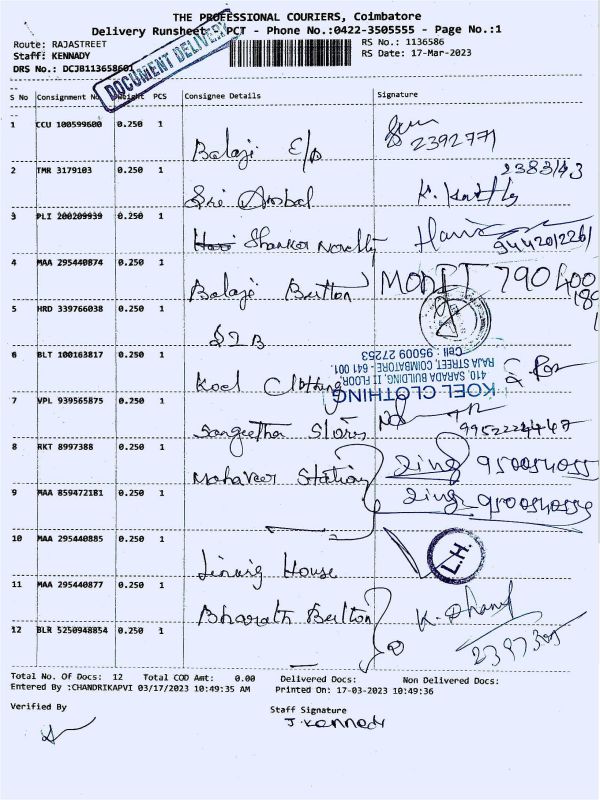 THE PROFESSIONAL COURIERS, Coimbatore
Delivery Runsheet PCT - Phone No.:0422-3505555 - Page No.:1
Route: RAJASTREET
RS No.: 1136586
Staff: KENNADY
RS Date: 17-Mar-2023
DRS No.: DCJB113658601
DOCUMENT DELIVERY
S No Consignment No Weight PCS Consignee Details Signature
1 CCU 100599600 0.250 1 Balaji E/D 2392771
2 TMR 3179103 0.250 1 Sri Ambal 2383143
3 PLI 200209939 0.250 1 Hari Shankar Novelty Hari 9442012261
4 MAA 295440874 0.250 1 Balaji Button 790400
5 HRD 339766038 0.250 1 S2B
6 BLT 100163817 0.250 1 Koel Clothing
KOEL CLOTHING
410, SARADA BUILDING, II FLOOR,
RAJA STREET, COIMBATORE - 641 001.
Cell : 95009 27253
7 VPL 939565875 0.250 1 Sangeetha Stores
8 RKT 8997388 0.250 1 Mahaveer Station
9 MAA 859472181 0.250 1
10 MAA 295440885 0.250 1 Lining House L.H.
11 MAA 295440877 0.250 1 Bharath Button K. Dhanf
12 BLR 5250948854 0.250 1 2397305
Total No. Of Docs: 12 Total COD Amt: 0.00 Delivered Docs: Non Delivered Docs:
Entered By :CHANDRIKAPVI 03/17/2023 10:49:35 AM Printed On: 17-03-2023 10:49:36
Verified By Staff Signature
J. Kennedy